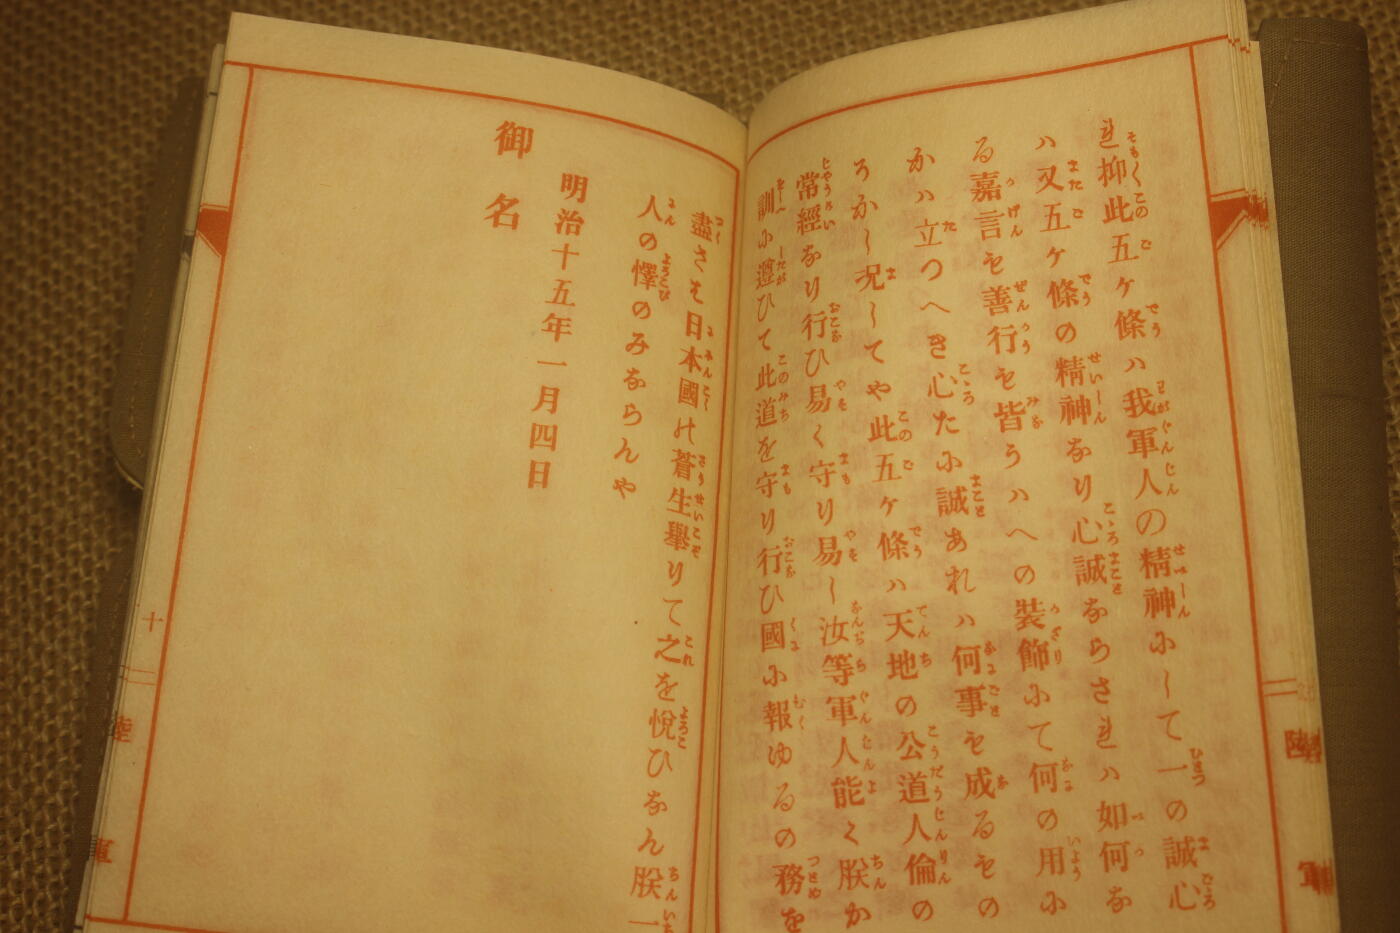 れ抑此五ヶ條ハ我軍人の精神にして一の誠心
ハ又五ヶ條の精神なり心誠ならされハ如何な
る嘉言も善行も皆うハへの裝飾にて何の用に
かハ立つへき心たに誠あれハ何事も成るもの
そかし况してや此五ヶ條ハ天地の公道人倫の
常經なり行ひ易く守り易し汝等軍人能く朕か
訓に遵ひて此道を守り行ひ國に報ゆるの務を
盡さは日本國の蒼生擧りて之を悅ひなん朕一
人の懌のみならんや
明治十五年一月四日
御名
十
陸軍